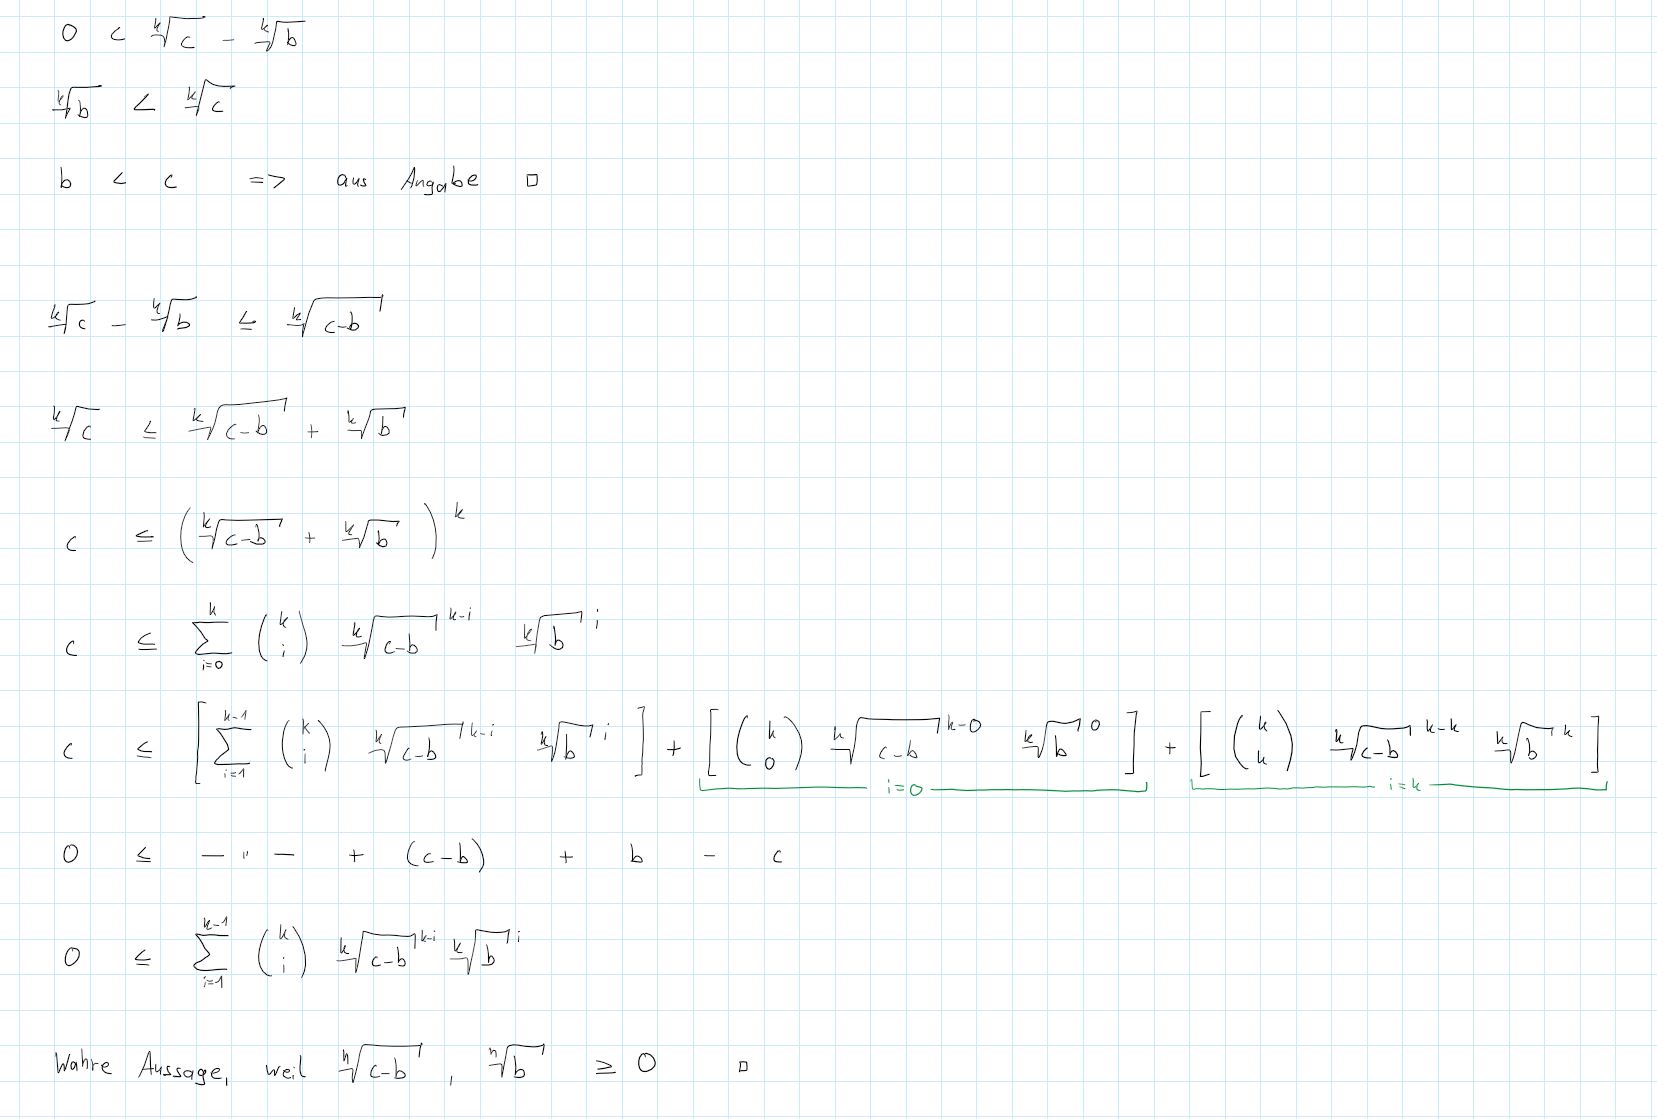 0 < ᵏ√c - ᵏ√b
ᵏ√b < ᵏ√c
b < c => aus Angabe □
ᵏ√c - ᵏ√b ≤ ᵏ√(c-b)
ᵏ√c ≤ ᵏ√(c-b) + ᵏ√b
c ≤ (ᵏ√(c-b) + ᵏ√b)^k
c ≤ ∑_{i=0}^{k} (k i) ᵏ√(c-b)^{k-i} ᵏ√b^i
c ≤ [∑_{i=1}^{k-1} (k i) ᵏ√(c-b)^{k-i} ᵏ√b^i] + [(k 0) ᵏ√(c-b)^{k-0} ᵏ√b^0] + [(k k) ᵏ√(c-b)^{k-k} ᵏ√b^k]
i=0 i=k
0 ≤ — " — + (c-b) + b - c
0 ≤ ∑_{i=1}^{k-1} (k i) ᵏ√(c-b)^{k-i} ᵏ√b^i
Wahre Aussage, weil ⁿ√(c-b) , ⁿ√b ≥ 0 □